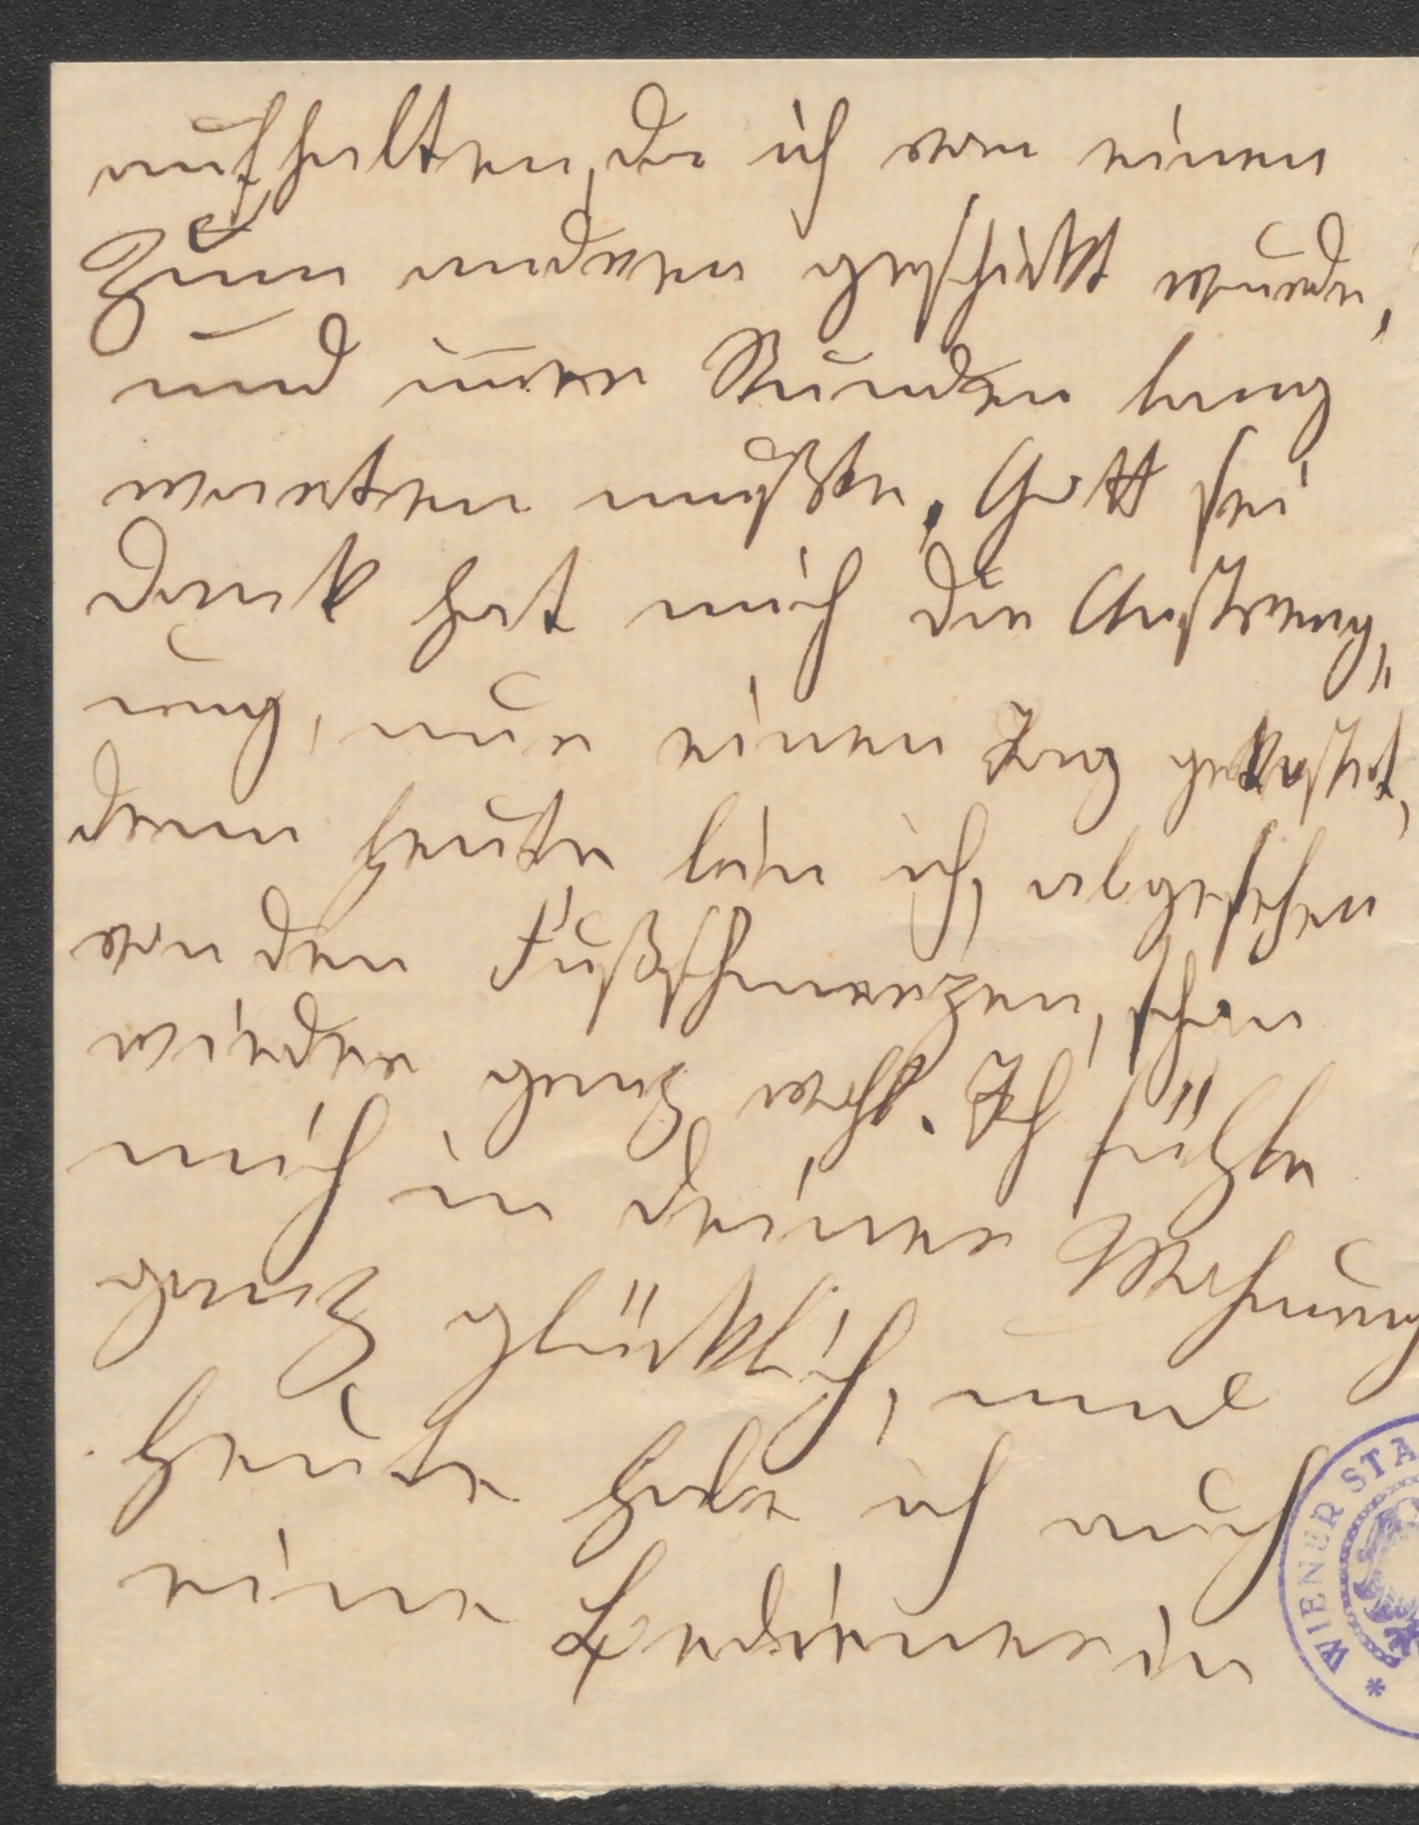 aufhalten, da ich von einen
zum anderen geschickt wurde,
und im̅er Stunden lang
warten mußte. Gott sei
dank hat mich die Anstreng„
ung, nur einen Tag gekostet,
denn heute bin ich, abgesehen
von den Fußschmerzen, schon
wieder ganz wohl. Ich fühle
mich in deiner Wohnung
ganz glücklich, nun
heute habe ich auch
eine Bedienerin
WIENER STA